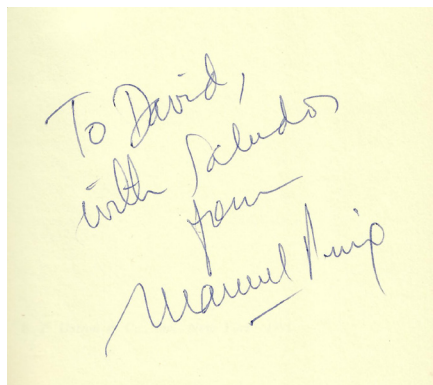 To David,
with Saludos
from
Manuel Puig